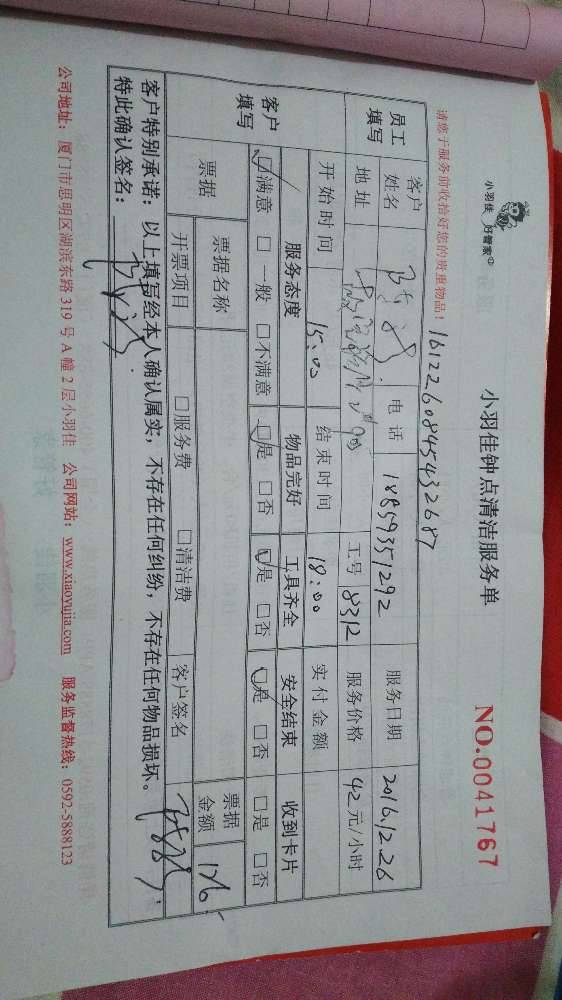 小羽佳 好管家
小羽佳钟点清洁服务单
NO.0041767
请您于服务前收拾好您的贵重物品！
1612260845432687
员工填写
客户姓名 电话 18859351292 服务日期 2016.12.26
地址 工号 8312 服务价格 42元/小时
开始时间 15:00 结束时间 18:00 实付金额
客户填写
服务态度 物品完好 工具齐全 安全结束 收到卡片
☑满意 □一般 □不满意 ☑是 □否 ☑是 □否 ☑是 □否 □是 □否
票据 票据名称 票据金额
开票项目 □服务费 □清洁费 客户签名
客户特别承诺：以上填写经本人确认属实，不存在任何纠纷，不存在任何物品损坏。
特此确认签名：
公司地址：厦门市思明区湖滨东路 319 号 A 幢 2 层小羽佳 公司网站：www.xiaoyujia.com 服务监督热线：0592-5888123